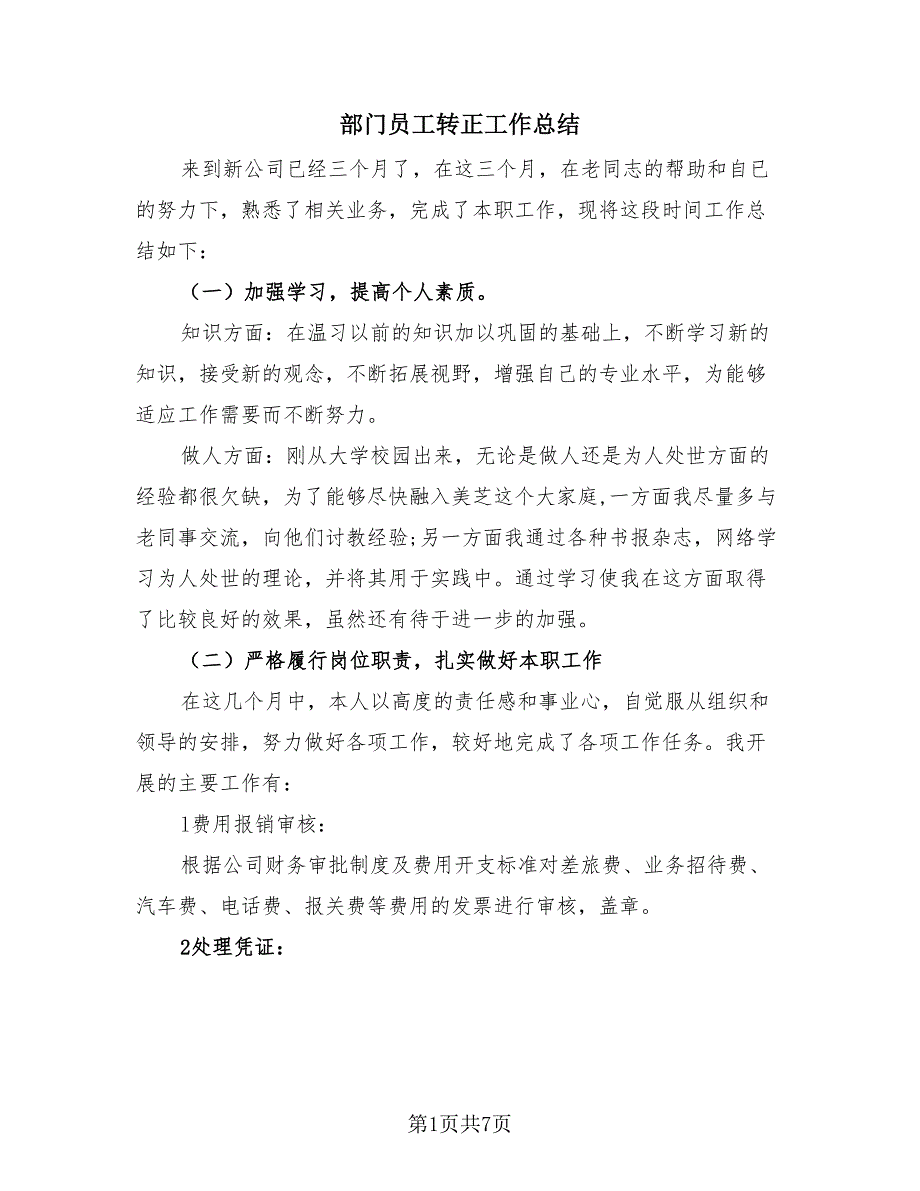 部门员工转正工作总结
来到新公司已经三个月了，在这三个月，在老同志的帮助和自己
的努力下，熟悉了相关业务，完成了本职工作，现将这段时间工作总
结如下：
（一）加强学习，提高个人素质。
知识方面：在温习以前的知识加以巩固的基础上，不断学习新的
知识，接受新的观念，不断拓展视野，增强自己的专业水平，为能够
适应工作需要而不断努力。
做人方面：刚从大学校园出来，无论是做人还是为人处世方面的
经验都很欠缺，为了能够尽快融入美芝这个大家庭,一方面我尽量多与
老同事交流，向他们讨教经验;另一方面我通过各种书报杂志，网络学
习为人处世的理论，并将其用于实践中。通过学习使我在这方面取得
了比较良好的效果，虽然还有待于进一步的加强。
（二）严格履行岗位职责，扎实做好本职工作
在这几个月中，本人以高度的责任感和事业心，自觉服从组织和
领导的安排，努力做好各项工作，较好地完成了各项工作任务。我开
展的主要工作有：
1费用报销审核：
根据公司财务审批制度及费用开支标准对差旅费、业务招待费、
汽车费、电话费、报关费等费用的发票进行审核，盖章。
2处理凭证：
第1页共7页